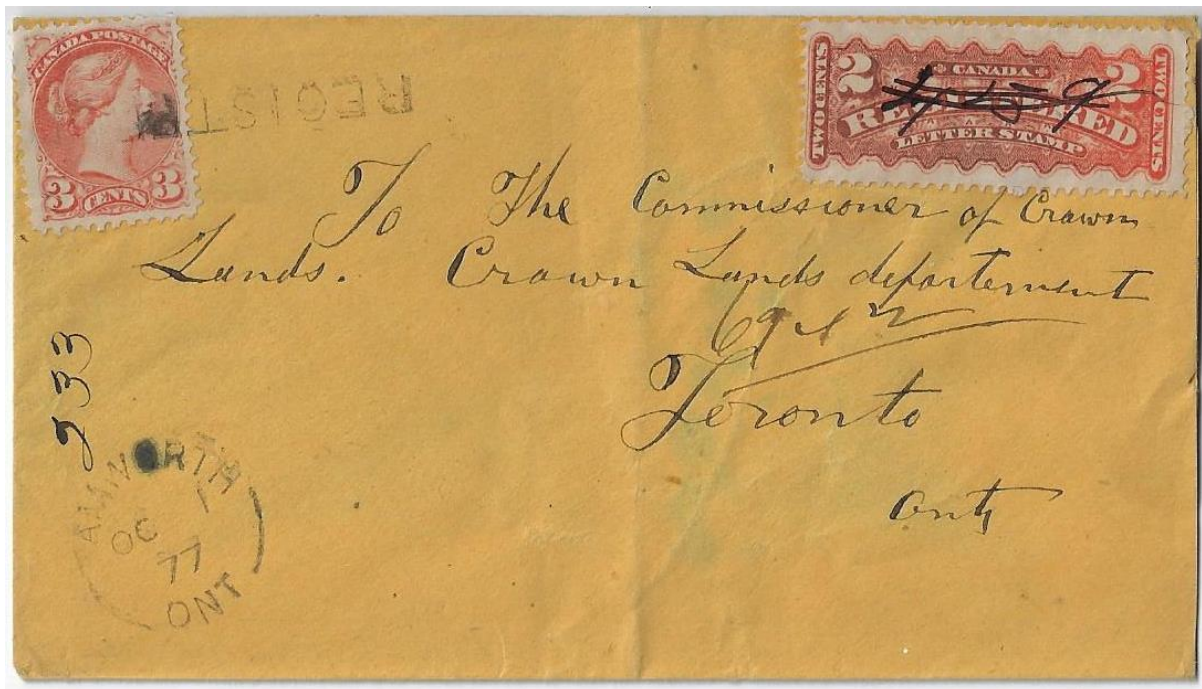 CANADA POSTAGE
3 CENTS 3
REGIST
CANADA
2 REGISTERED 2
LETTER STAMP
TWO CENTS
TWO CENTS
To The Commissioner of Crown
Lands. Crown Lands departement
Toronto
Ont
233
AMWORTH
OC 1
77
ONT